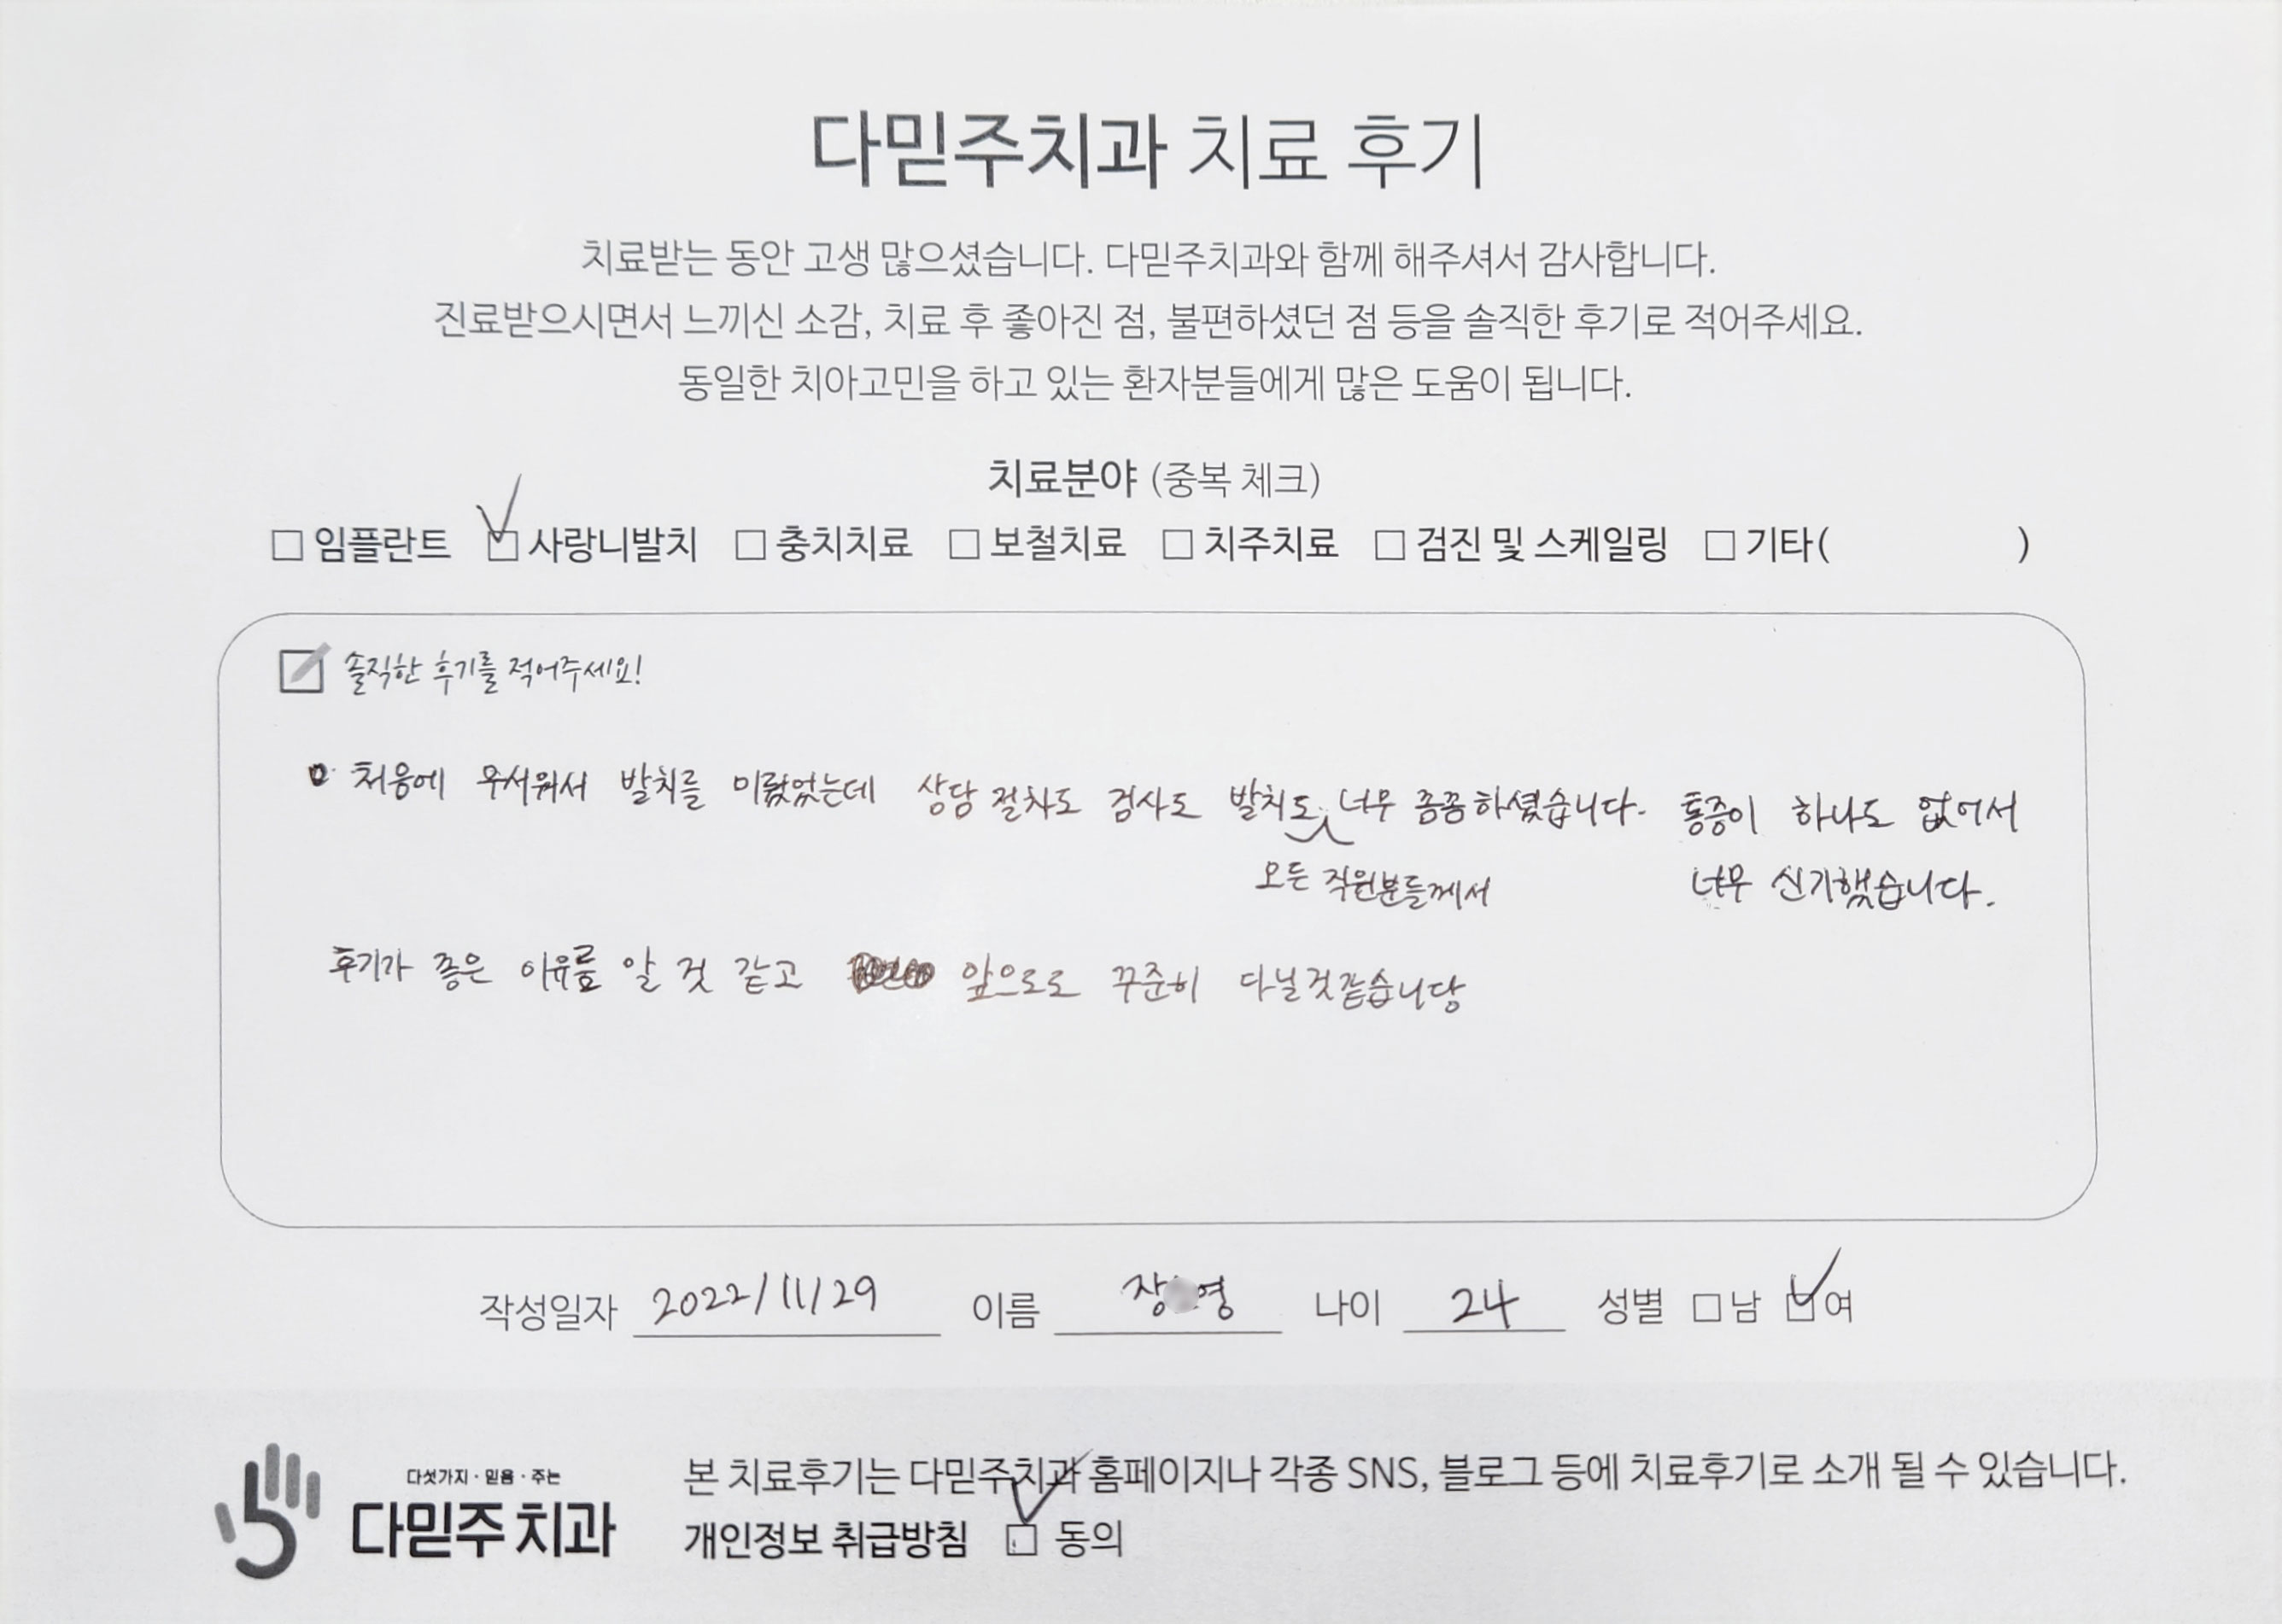 다믿주치과 치료 후기
치료받는 동안 고생 많으셨습니다. 다믿주치과와 함께 해주셔서 감사합니다.
진료받으시면서 느끼신 소감, 치료 후 좋아진 점, 불편하셨던 점 등을 솔직한 후기로 적어주세요.
동일한 치아고민을 하고 있는 환자분들에게 많은 도움이 됩니다.
치료분야 (중복 체크)
□ 임플란트 ☑ 사랑니발치 □ 충치치료 □ 보철치료 □ 치주치료 □ 검진 및 스케일링 □ 기타( )
솔직한 후기를 적어주세요!
처음에 무서워서 발치를 미뤘었는데 상담 절차도 검사도 발치도 너무 꼼꼼하셨습니다. 통증이 하나도 없어서
모든 직원분들께서 너무 신기했습니다.
후기가 좋은 이유를 알 것 같고 앞으로도 꾸준히 다닐것같습니당
작성일자 2022/11/29 이름 장 영 나이 24 성별 □남 ☑여
다섯가지 · 믿음 · 주는
다믿주 치과
본 치료후기는 다믿주치과 홈페이지나 각종 SNS, 블로그 등에 치료후기로 소개 될 수 있습니다.
개인정보 취급방침 ☑ 동의